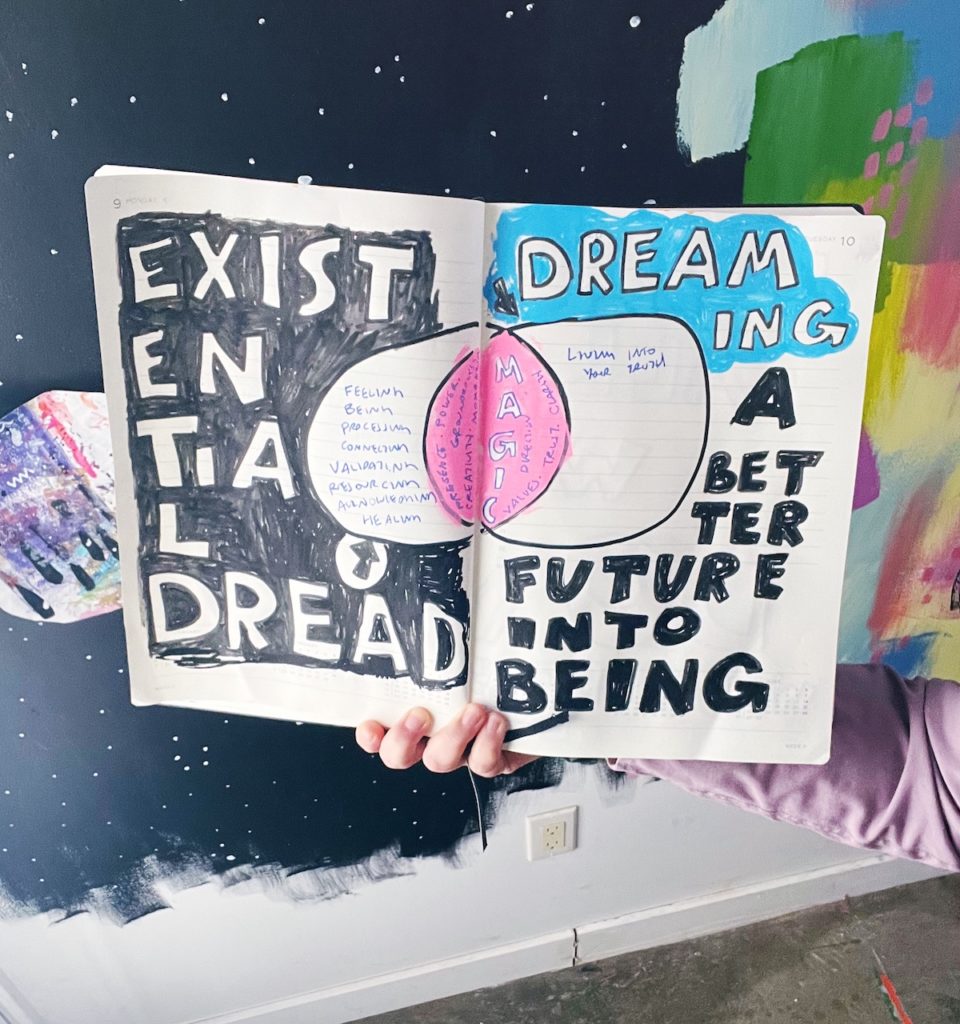 9 MONDAY
EXIST
EN
TIA
L
DREAD
FEELING
BEING
PROCESSING
CONNECTING
VALIDATING
RESOURCING
ACKNOWLEDGING
HEALING
PRESENCE. POWER.
CREATIVITY.
MAGIC
VALUES. DIRECTION
TRUST. CLARITY
TUESDAY 10
DREAM
ING
LIVING INTO
YOUR TRUTH
A
BET
TER
FUTURE
INTO
BEING